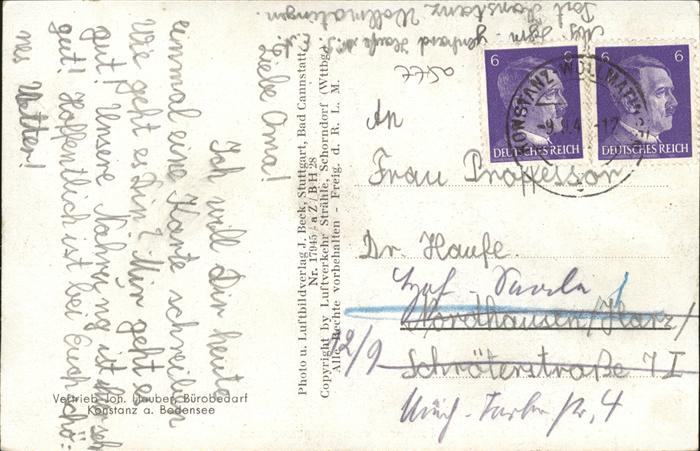 Liebe Oma!
Ich will Dir heute
einmal eine Karte schreiben
Wie geht es Dir? Mir geht es
gut! Unsere Nahrung ist sehr
gut! Hoffentlich ist bei Euch schö=
nes Wetter!
Abs. Haufe
Post Konstanz Wollmatingen.
Photo u. Luftbildverlag J. Beck, Stuttgart, Bad Cannstatt
Nr. 17945 a Z/BH 28
Copyright by Luftverkehr Strähle, Schorndorf (Wttbg)
Alle Rechte vorbehalten - Freig. d. R. L. M.
6 6
6 6
DEUTSCHES REICH
DEUTSCHES REICH
KONSTANZ-WOLLMATINGEN
An
Frau Proffessor
Dr. Haufe.
Nordhausen/Harz/
Schröterstraße 7 I
12/9
4
Vertrieb Joh. Hauber, Bürobedarf
Konstanz a. Bodensee